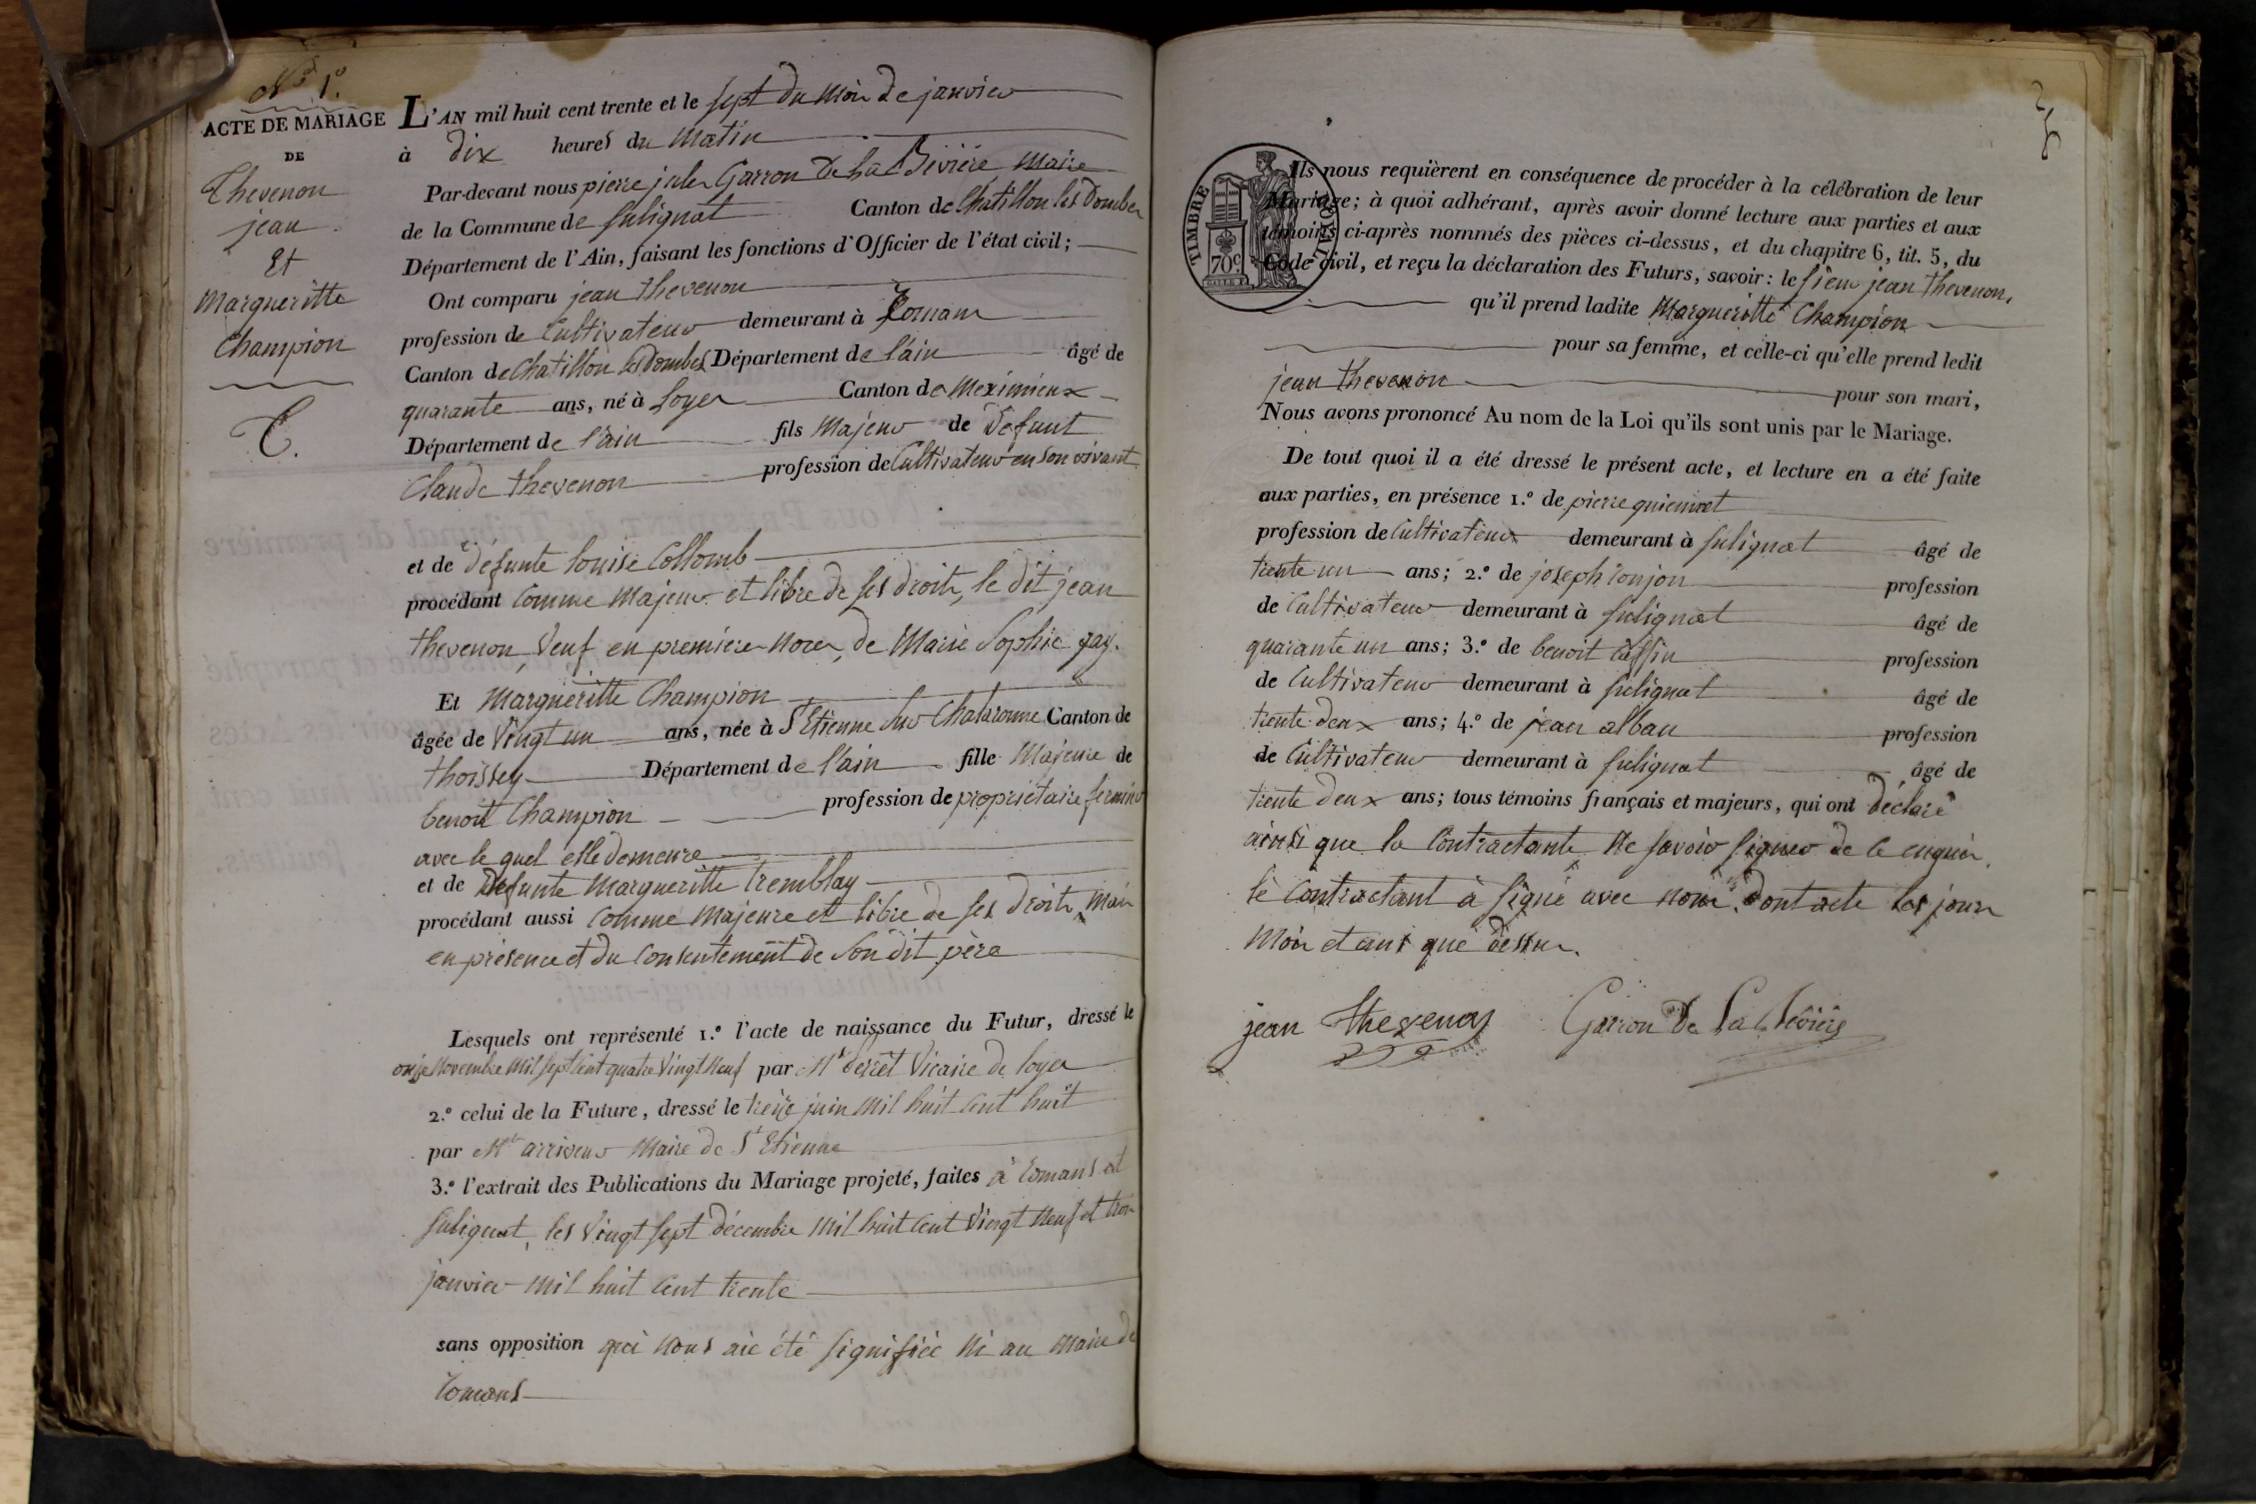 N° 1.°
ACTE DE MARIAGE
DE
Thevenon
jean
Et
Margueritte
Champion
T.
L'AN mil huit cent trente et le sept du mois de janvier
à dix heures du matin
Par-devant nous pierre jules Garron de La Bévière, Maire
de la Commune de Sulignat Canton de Chatillon les Dombes
Département de l'Ain, faisant les fonctions d'Officier de l'état civil;
Ont comparu jean thevenon
profession de Cultivateur demeurant à Romans
Canton de Chatillon les Dombes Département de l'ain âgé de
quarante ans, né à Loyes Canton de Meximieux
Département de l'ain fils Majeur de Défunt
Claude thevenon profession de Cultivateur en son vivant
et de défunte Louise Collomb
procédant Comme Majeur et libre de ses droits, le dit jean
thevenon, Veuf en premieres noces, de Marie Sophie gay.
Et Margueritte Champion
âgée de Vingt un ans, née à St Etienne sur Chalaronne Canton de
thoissey Département de l'ain fille Majeure de
benoit Champion profession de propriétaire fermier
avec le quel elle demeure
et de Défunte Margueritte Tremblay
procédant aussi Comme Majeure et libre de ses droits, Mais
en présence et du Consentement de Son dit père
Lesquels ont représenté 1.° l'acte de naissance du Futur, dressé le
onze Novembre Mil Sept Cent quatre Vingt Neuf par Mr Vicaire de Loyes
2.° celui de la Future, dressé le treize juin Mil huit Cent huit
par Mr arriveur Maire de St Etienne
3.° l'extrait des Publications du Mariage projeté, faites à Romans et
Sulignat, les Vingt Sept décembre Mil huit Cent Vingt Neuf et trois
janvier Mil huit Cent trente
sans opposition qui nous aie été signifiée Ni au Maire de
Romans
TIMBRE ROYAL
70c
Ils nous requièrent en conséquence de procéder à la célébration de leur
Mariage; à quoi adhérant, après avoir donné lecture aux parties et aux
témoins ci-après nommés des pièces ci-dessus, et du chapitre 6, tit. 5, du
Code civil, et reçu la déclaration des Futurs, savoir: le Sieur jean thevenon,
qu'il prend ladite Margueritte Champion
pour sa femme, et celle-ci qu'elle prend ledit
jean thevenon pour son mari,
Nous avons prononcé Au nom de la Loi qu'ils sont unis par le Mariage.
De tout quoi il a été dressé le présent acte, et lecture en a été faite
aux parties, en présence 1.° de pierre
profession de Cultivateur demeurant à Sulignat âgé de
trente un ans; 2.° de joseph profession
de Cultivateur demeurant à Sulignat âgé de
quarante un ans; 3.° de benoit profession
de Cultivateur demeurant à Sulignat âgé de
trente deux ans; 4.° de jean alban profession
de Cultivateur demeurant à Sulignat âgé de
trente deux ans; tous témoins français et majeurs, qui ont déclaré
ainsi que la Contractante Ne savoir signer de Ce enquis.
le Contractant à signé avec nous. dont acte les jour
Mois et ans que dessus.
jean thevenon Garron De La Bévière